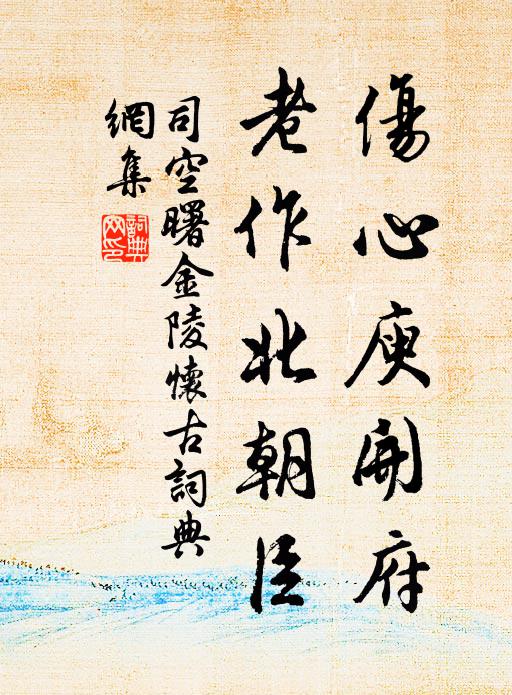 傷心庾開府
老作北朝臣
司空曙金陵懷古詞典
網集
詞典網印